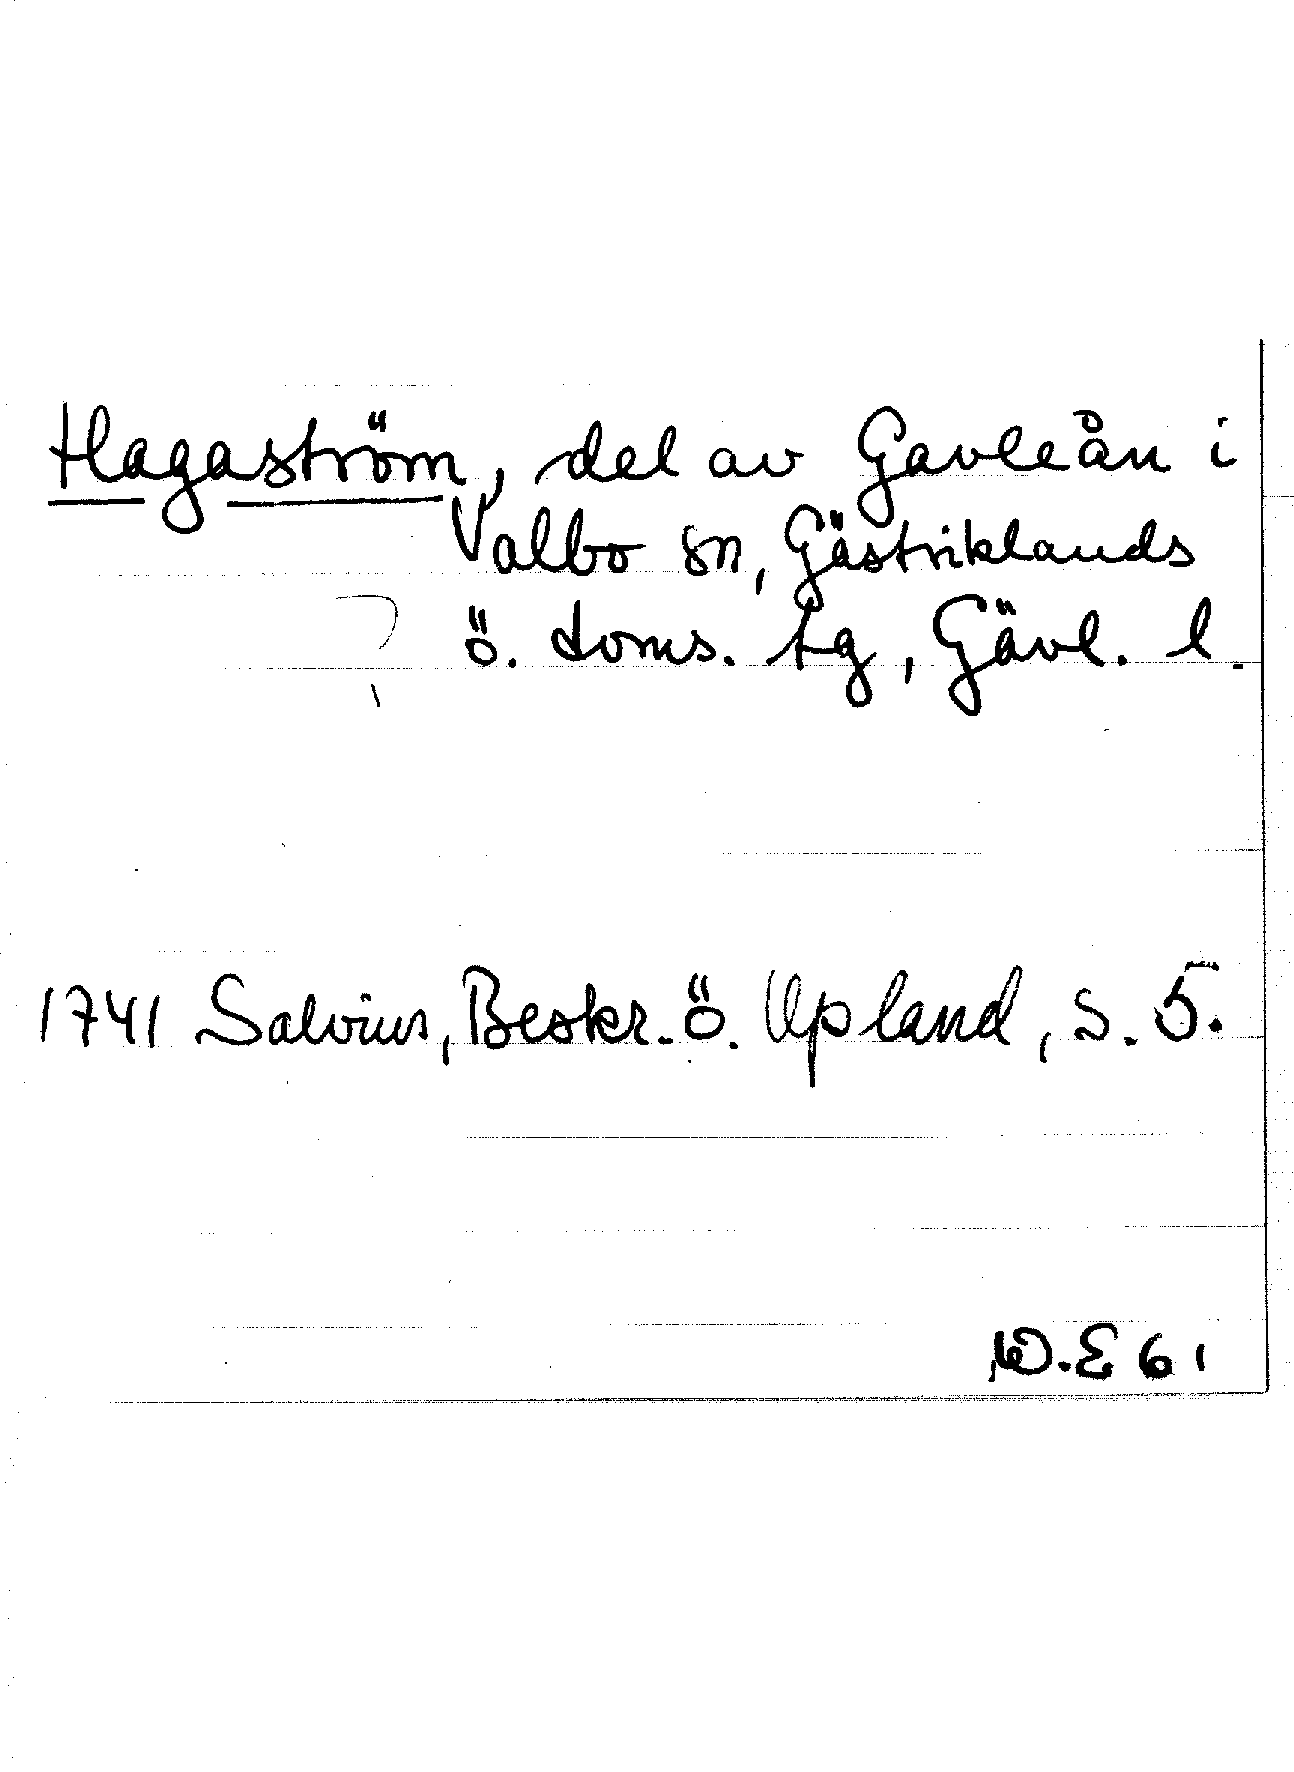 Hagaström, del av Gavleån i
Valbo sn, Gästriklands
? ö. doms. tg, Gävl. l.
1741 Salvius, Beskr. ö. Upland, s. 5.
W.E 61